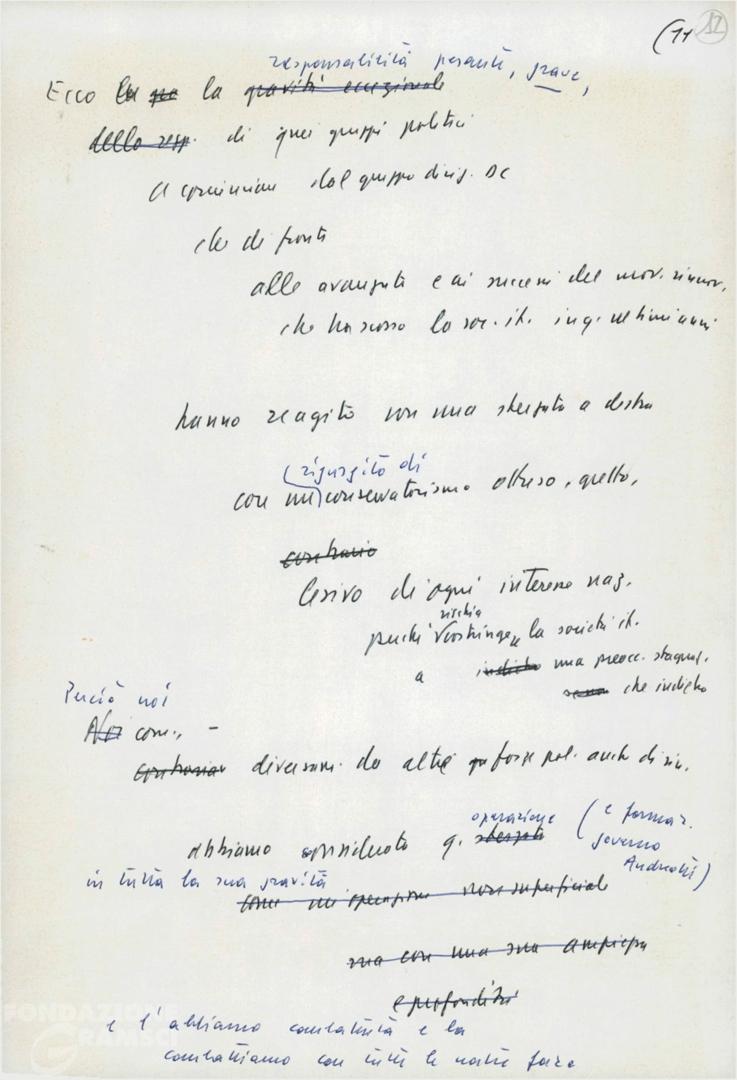 (11 12
responsabilità pesante, grave,
Ecco la gravità eccezionale
della resp. di quei gruppi politici
a cominciare dal gruppo dirig. DC
che di fronte
alle avanzate e ai successi del mov. rinnov.
che ha scosso la soc. it. in q. ultimi anni
hanno reagito con una sterzata a destra
(rigurgito di
con un) conservatorismo ottuso, gretto,
contrario
lesivo di ogni interesse naz.
rischia
perché costringe la società it.
a indietro una preocc. stagnaz.
che indietro
Perciò noi
Noi com. -
diversam. da altre forze pol. anche di sin.
operazione (e formaz.
abbiamo considerato q. sterzata governo
Andreotti)
in tutta la sua gravità
come un'operazione non superficiale
ma con una sua ampiezza
e profondità
e l'abbiamo combattuta e la
combattiamo con tutte le nostre forze
FONDAZIONE
GRAMSCI